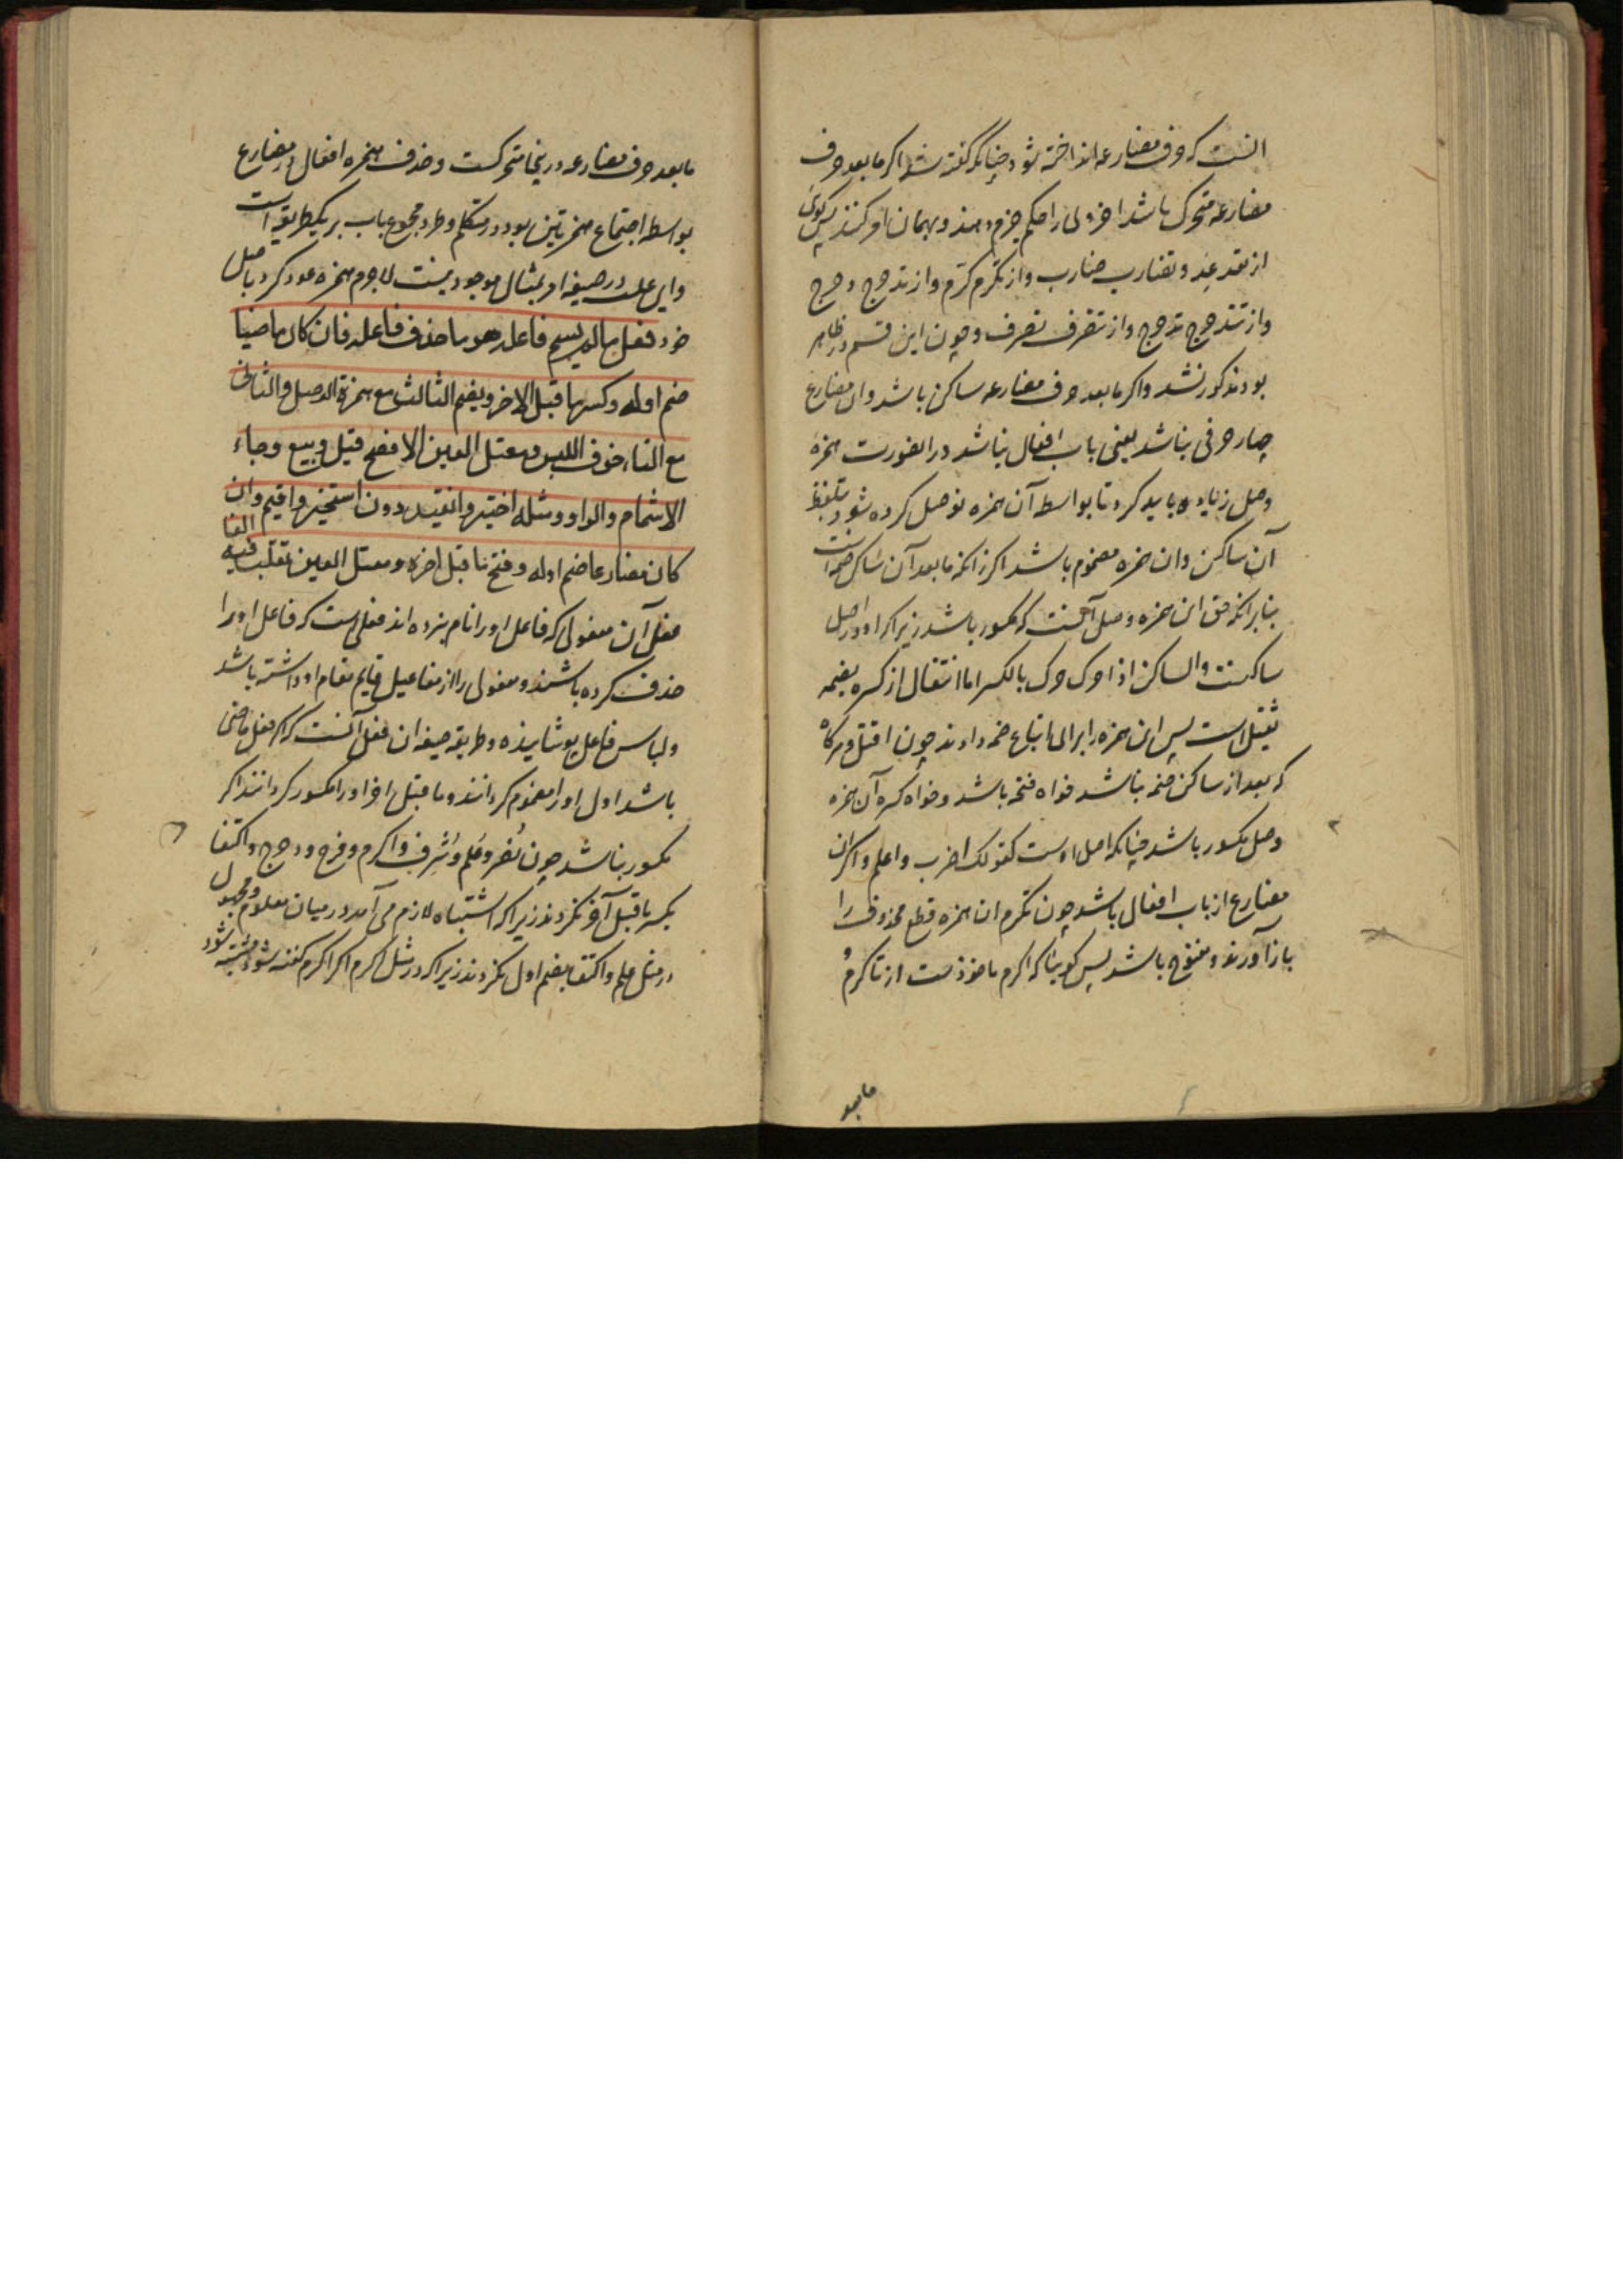 آنست که حرف مضارعه انداخته شود چنانکه گفته شد اگر ما بعد حرف
مضارعه متحرک باشد آخر وی را حکم جزم دهند و بهمان امر کنند پس گوئی
از تعد عد و تضارب ضارب و از تکرم کرم و از تدحرج دحرج
و از تتدحرج تدحرج و از تتصرف تصرف و چون این قسم ظاهر
بود مذکور نشد و اگر ما بعد حرف مضارعه ساکن باشد و آن مضارع
چهار حرفی نباشد یعنی باب افعال نباشد در انصورت همزه
وصل زیاده باید کرد تا بواسطه آن همزه توصل کرده شود بتلفظ
آن ساکن و ان همزه مضموم باشد اگر زانکه ما بعد آن ساکن ضمه است
بنابر انکه حق این همزه وصل آنست که مکسور باشد زیرا که او در اصل
ساکنست والساکن اذا حرک حرک بالکسر اما انتقال از کسره بضمه
ثقیل است پس این همزه را برای اتباع ضمه دادند چون اقتل و هرگاه
که بعد از ساکن ضمه نباشد خواه فتحه باشد و خواه کسره آن همزه
وصل مکسور باشد چنانکه اصل اوست کقولک اضرب واعلم و اگر ان
مضارع از باب افعال باشد چون تکرم ان همزه قطع محذوف را
باز آورند و مفتوح باشد پس گوینا که اکرم ماخوذست از تاکرم
ما بعد
ما بعد حرف مضارعه در ینجا متحرکست و حذف همزه افعال در مضارع
بواسطه اجتماع همزتین بود در متکلم و طرد مجموع باب بر یکطریقه است
و این علت در صیغه امر بمثال موجود نیست لاجرم همزه عود کرد باصل
خود فعل ما لم یسم فاعله هو ما حذف فاعله فان کان ماضیا
ضم اوله وکسر ما قبل الاخر ویضم الثالث مع همزة الوصل والثانی
مع التاء خوف اللبس ومعتل العین الافصح قیل وبیع وجاء
الاشمام والواو ومثله اختیر وانقید دون استخیر واقیم وان
کان مضارعا ضم اوله وفتح ما قبل اخره ومعتل العین تقلب فیه الفا
فعل آن مفعولی که فاعل او را نام نبرده اند فعلی است که فاعل او را
حذف کرده باشند و مفعولی را از مفاعیل قایم مقام او داشته باشد
و لباس فاعل پوشانیده و طریقه صیغه ان فعل آنست که اگر فعل ماضی
باشد اول او را مضموم گردانند و ما قبل اخر او را مکسور گردانند اگر
مکسور نباشد چون نصر و علم و شرف و اکرم و فرح و دحرج و اکتفا
بکسر ما قبل آخر نکردند زیرا که اشتباه لازم می آمد در میان معلوم و مجهول
در مثل علم و اکتفا بضم اول نکردند زیرا که در مثل اکرم اگر اکرم گفته شود مشتبه شود